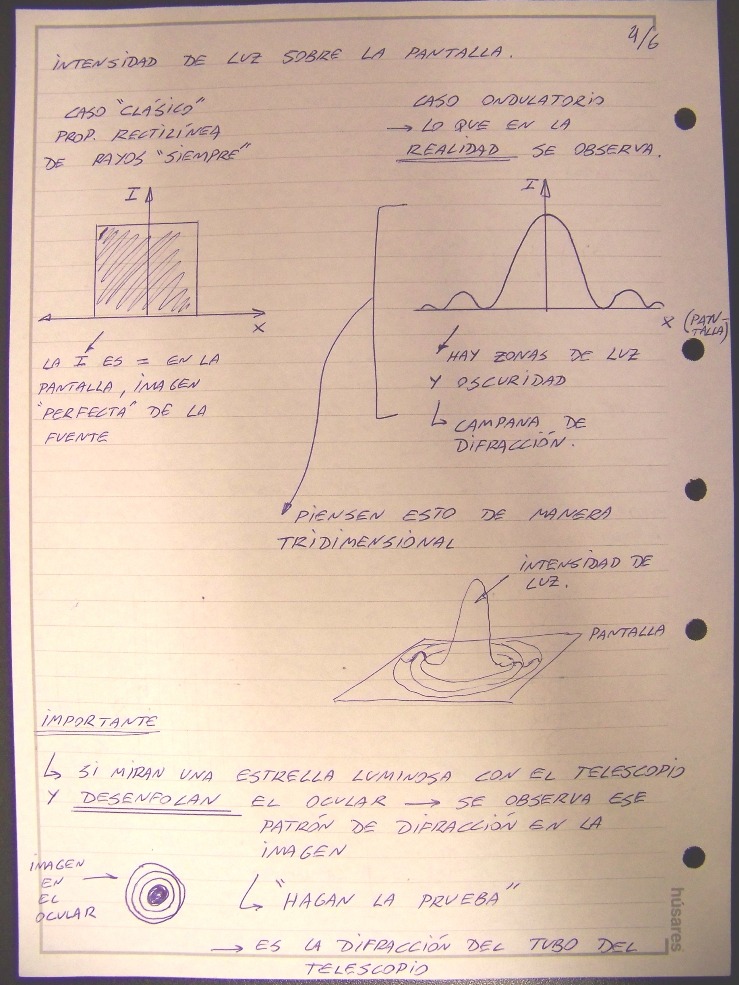 4/6
INTENSIDAD DE LUZ SOBRE LA PANTALLA.
CASO "CLÁSICO"
PROP. RECTILÍNEA
DE RAYOS "SIEMPRE"
CASO ONDULATORIO
→ LO QUE EN LA
REALIDAD SE OBSERVA.
I
X
I
X (PAN-
TALLA)
LA I ES = EN LA
PANTALLA, IMAGEN
"PERFECTA" DE LA
FUENTE
HAY ZONAS DE LUZ
Y OSCURIDAD
CAMPANA DE
DIFRACCIÓN.
PIENSEN ESTO DE MANERA
TRIDIMENSIONAL
INTENSIDAD DE
LUZ.
PANTALLA
IMPORTANTE
SI MIRAN UNA ESTRELLA LUMINOSA CON EL TELESCOPIO
Y DESENFOCAN EL OCULAR → SE OBSERVA ESE
PATRÓN DE DIFRACCIÓN EN LA
IMAGEN
IMAGEN
EN
EL
OCULAR
"HAGAN LA PRUEBA"
→ ES LA DIFRACCIÓN DEL TUBO DEL
TELESCOPIO
húsares